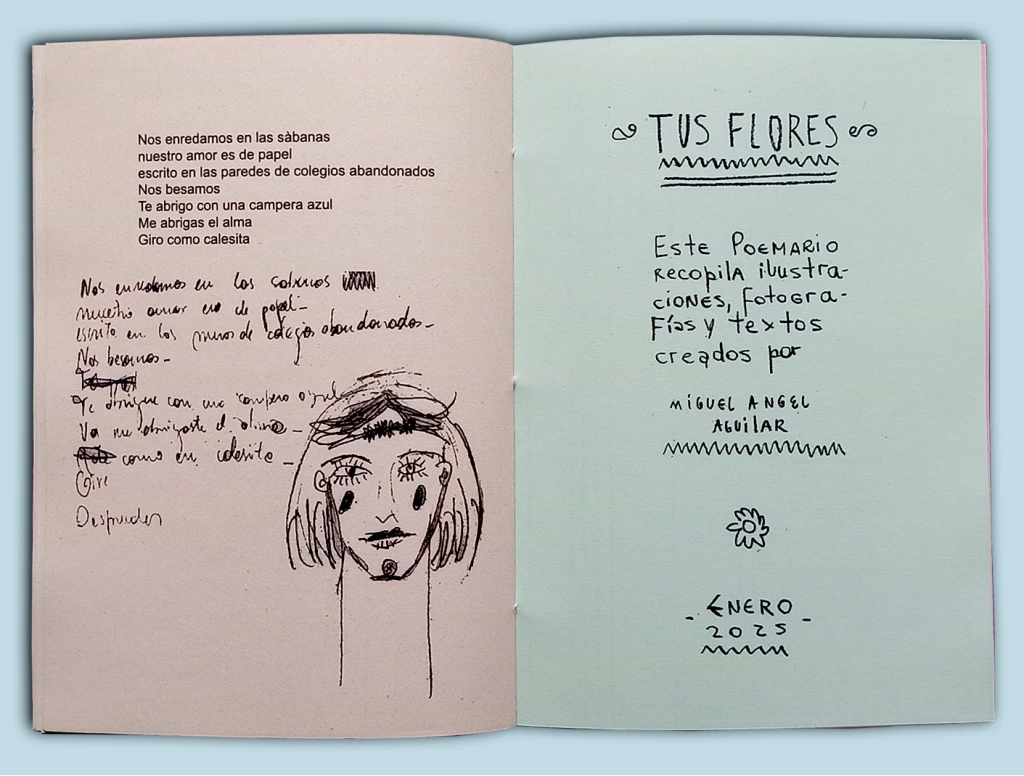 Nos enredamos en las sàbanas
nuestro amor es de papel
escrito en las paredes de colegios abandonados
Nos besamos
Te abrigo con una campera azul
Me abrigas el alma
Giro como calesita
Nos enredamos en las
amor de papel-
escrito en los muros de colegios abandonados-
Nos besamos-
Te con una campera azul
me abrigaste el
como en calesita -
TUS FLORES
Este POEMARIO
RECOPILA ilustra-
ciONES, fotogra-
Fías y textos
creados por
MIGUEL ANGEL
AGUILAR
- ENERO -
2025